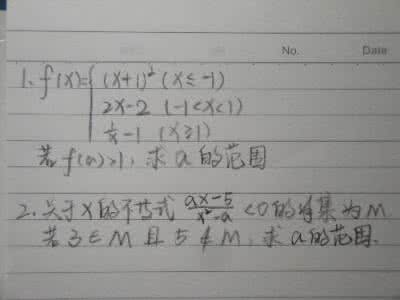 No. Date
1. f(x)={ (x+1)² (x≤-1)
2x-2 (-1<x<1)
1/x -1 (x≥1)
若 f(a)>1, 求 a 的范围
2. 关于 x 的不等式 (ax-5)/(x²-a) <0 的解集为 M
若 3∈M 且 5∉M, 求 a 的范围.